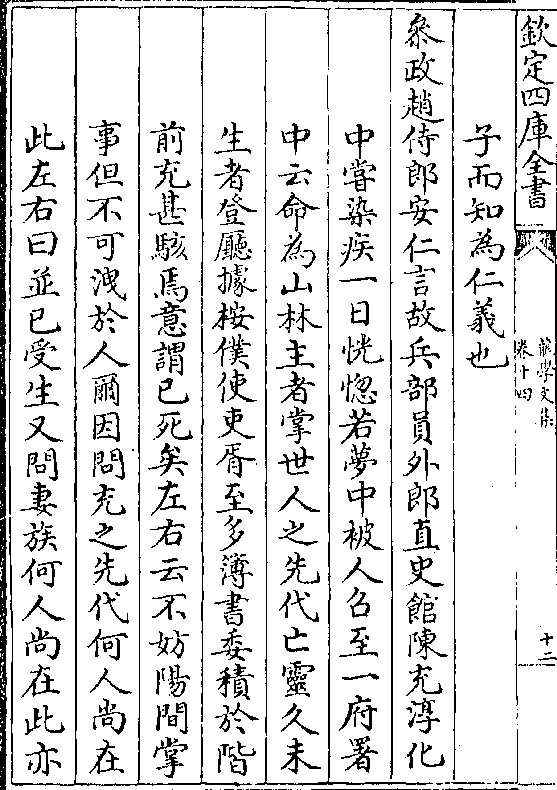 欽定四庫全書
蘇學士集
卷十四
十二
子而知為仁義也
叅政趙侍郎安仁言故兵部員外郎直史館陳充淳化
中嘗染疾一日恍惚若夢中被人召至一府署
中云命為山林主者掌世人之先代亡靈久未
生者登廳據桉僕使吏胥至多簿書委積於階
前充甚駭焉意謂已死矣左右云不妨陽間掌
事但不可洩於人爾因問充之先代何人尚在
此左右曰並已受生又問妻族何人尚在此亦